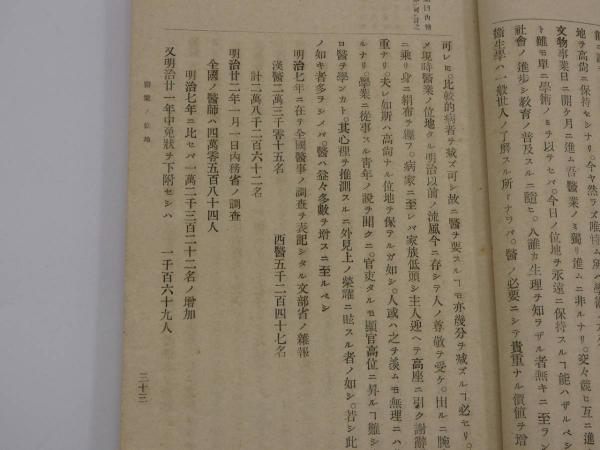 能ニ
地ヲ高尚ニ保持セシナリ。今ヤ然ラズ唯特ムル所ハ學
文物事業日ニ開ケ月ニ進ム吾醫業ノミ獨リ進ムニ非ルナリ。交々競ヒ互ニ進
ト雖モ單ニ學術ノミヲ以テセバ。今日ノ位地ヲ永遠ニ保持スルヿ能ハザルベシ
社會ノ進歩シ教育ノ普及スルニ隨ヒ。八誰カ生理ヲ知ラザル者無キニ至ラン
衛生學ハ一般世人ノ了解スル所トナラバ。醫ノ必要ニシテ貴重ナル價値ヲ增
可レモ。比較的病者ヲ減ズ可シ故ニ醫ヲ要スルヿモ亦幾分ヲ減ズルヿ必セリ。
メ現時醫業ノ位地タル明治以前ノ流風今ニ存シテ人ノ尊敬ヲ受ケ。出ルニ腕
ニ乘リ身ニ絹布ヲ纏フ。病家ニ至レバ家族低頭シ主人迎ヘテ高座ニ引ク謝辭
重ナリ。夫レ如斯ハ高尚ナル位地ヲ保テルガ如シ。人或ハ之ヲ羨ムモ無理ニハ
ルナリ。學業ニ從事スル青年ノ説ヲ聞クニ。官吏タルモ顯官高位ニ昇ルヿ難シ
ロ醫ヲ學ンカト。其心裡ヲ推測スルニ外見上ノ榮譽ニ眩スル者ノ如シ。若シ此
ノ如キ者多ヲシメバ。醫ハ益々多數ヲ增スニ至ルベシ
明治七年ニ在テ全國醫事ノ調査ヲ表記シタル文部省ノ雜報
漢醫二萬三千零十五名　西醫五千二百四十七名
計二萬八千二百六十二名
明治廿二年一月一日内務省ノ調査
全國ノ醫師ハ四萬零五百八十四人
明治七年ニ比セバ一萬二千三百二十二名ノ增加
又明治廿一年中免狀ヲ下附セシハ　一千百六十九人
醫業ノ位地
三十三